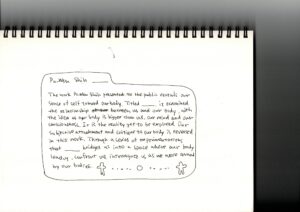 Pu.Mbu Shilo _____
The work Pu.Mbu Shilo presented to the public reveals our
sense of self toward our body. Titled ____ is examined
the relationship between us and our body, with
the idea as our body is bigger than us, our mind and our
consciousness. Is it the reality yet to be explored. Our
subjective attachment and critique to our body is revealed
in this work. Through a series of
that ____ bridges us into a space where our body
lonely, confront us, as we were served
by our bodies.